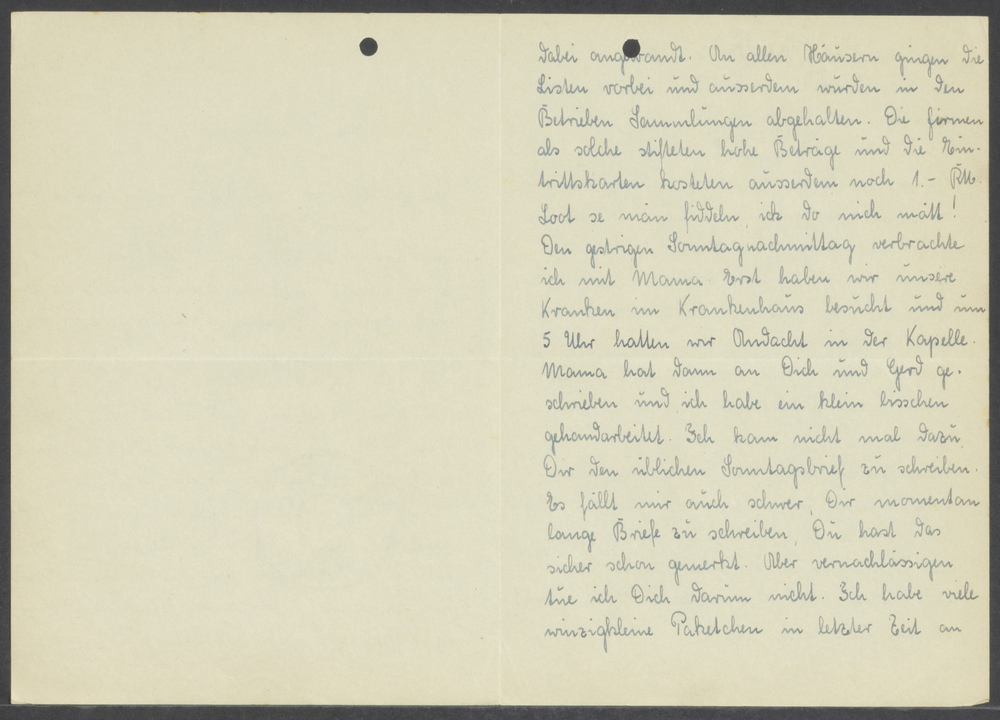 dabei angewandt. An allen Häusern gingen die
Listen vorbei und ausserdem wurden in den
Betrieben Sammlungen abgehalten. Die Firmen
als solche stifteten hohe Beträge und die Ein-
trittskarten kosteten ausserdem noch 1.- RM.
Loot se man fiddeln, ick do nich matt!
Den gestrigen Sonntagnachmittag verbrachte
ich mit Mama. Erst haben wir unsere
Kranken im Krankenhaus besucht und um
5 Uhr hatten wir Andacht in der Kapelle.
Mama hat dann an Dich und Gerd ge-
schrieben und ich habe ein klein bisschen
gehandarbeitet. Ich kam nicht mal dazu,
Dir den üblichen Sonntagsbrief zu schreiben.
Es fällt mir auch schwer, Dir momentan
lange Briefe zu schreiben, Du hast das
sicher schon gemerkt. Aber vernachlässigen
tue ich Dich darum nicht. Ich habe viele
winzigkleine Paketchen in letzter Zeit an